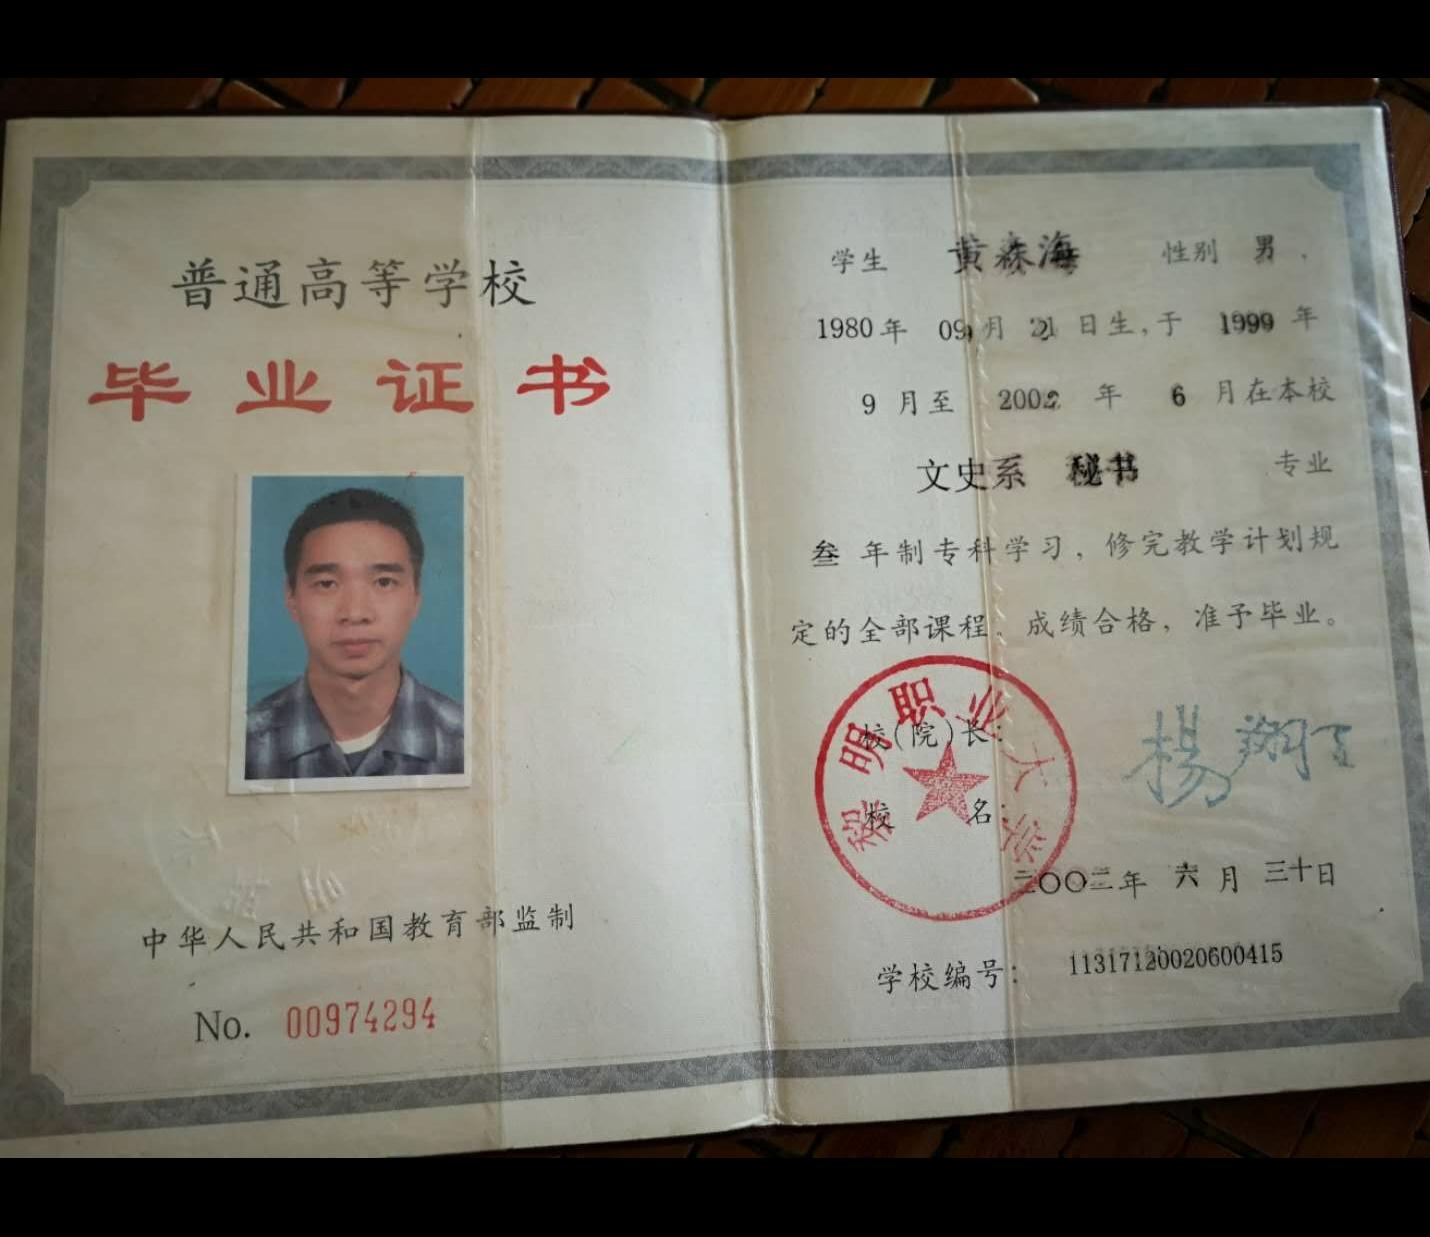 普通高等学校
毕业证书
中华人民共和国教育部监制
No. 00974294
学生 黄森海 性别 男，
1980年 09月 21日生，于 1999年
9月至 2002年 6月在本校
文史系 秘书 专业
叁年制专科学习，修完教学计划规
定的全部课程。成绩合格，准予毕业。
黎明职业大学
校（院）长：杨翔
校 名：
二〇〇二年 六月 三十日
学校编号：11317120020600415